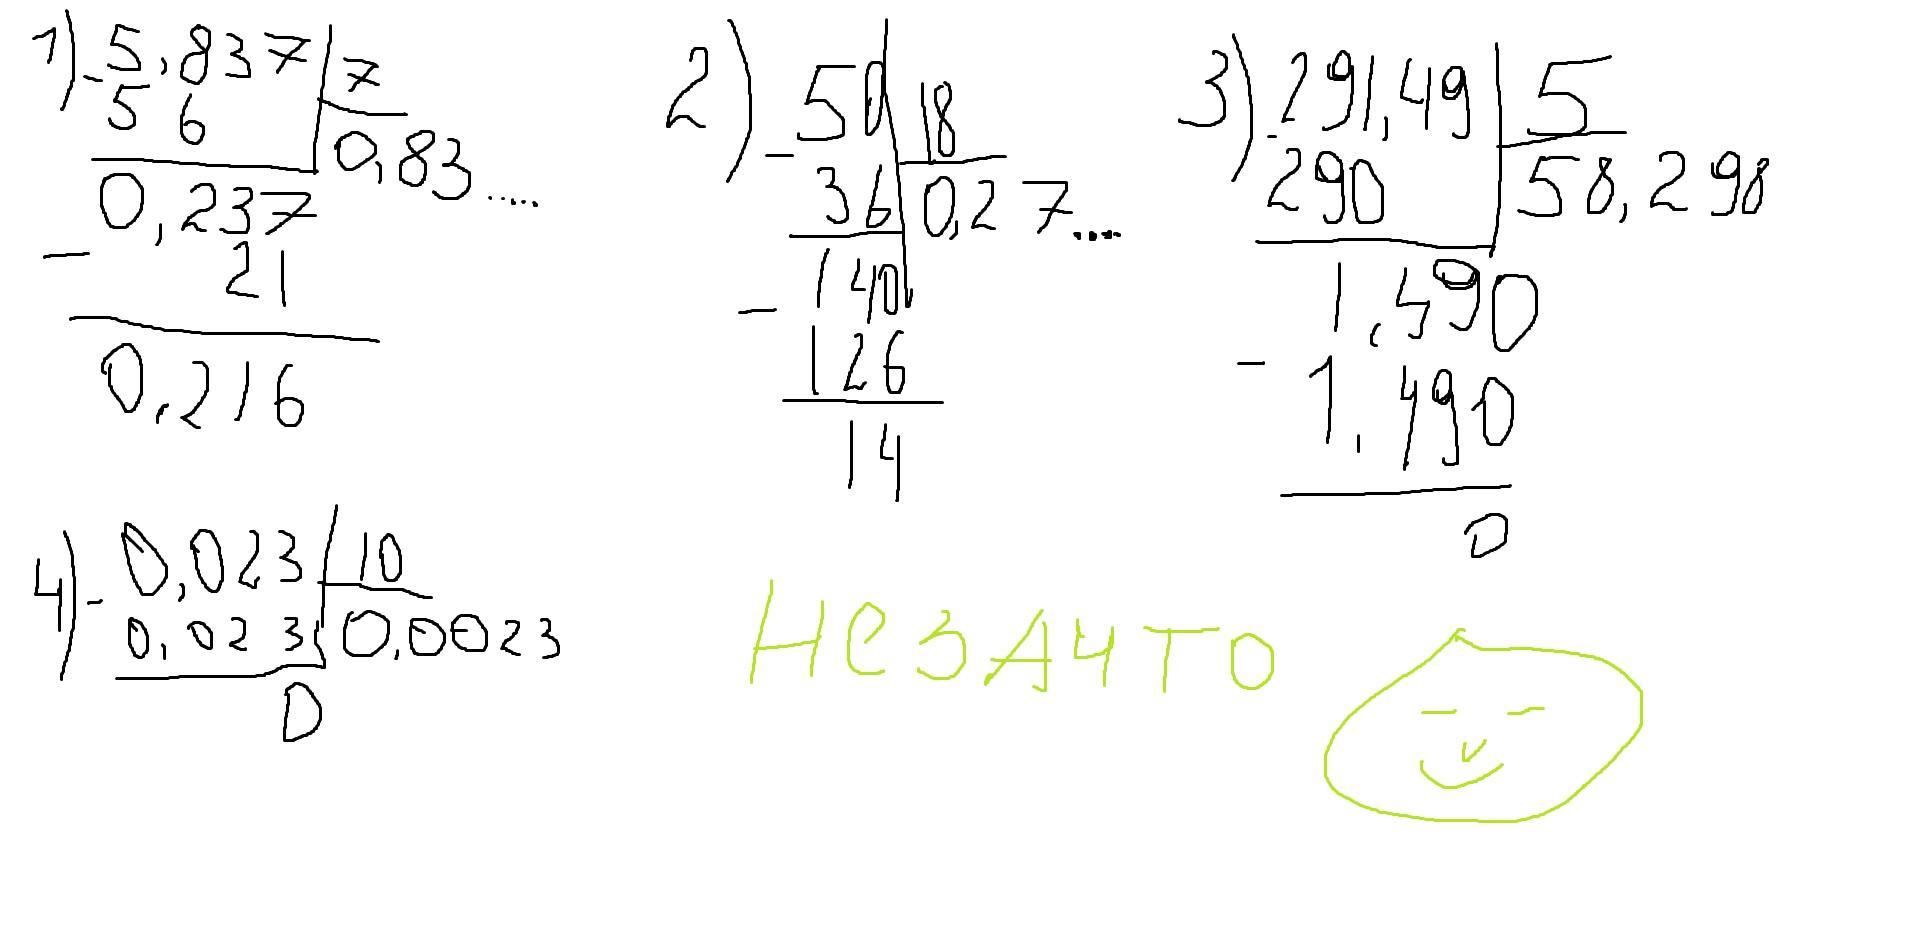 1) - 5,837 | 7
5 6 | 0,83.....
0,237
- 21
0,216
2) - 50 | 18
36 | 0,27....
140
- 126
14
3) - 291,49 | 5
290 | 58,298
1,490
- 1,490
0
4) - 0,023 | 10
0,023 | 0,0023
0
НеЗАЧТО